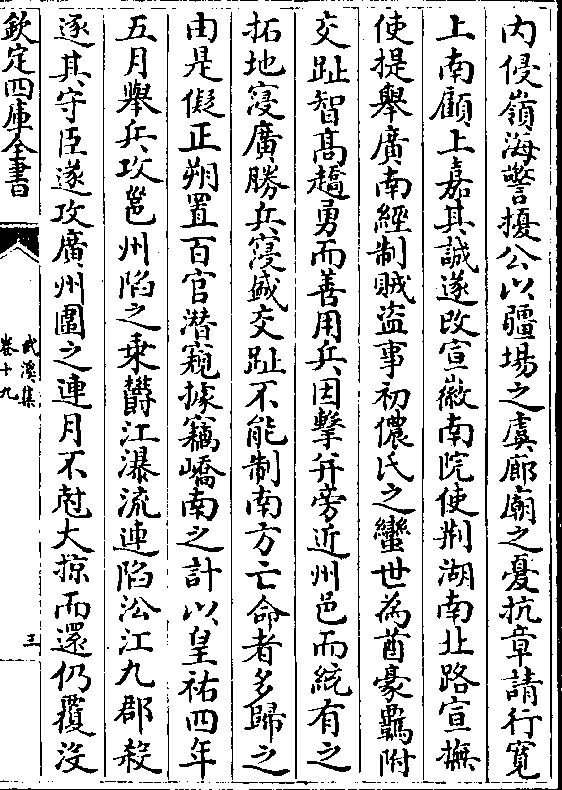 内侵嶺海警擾公以疆場之虞廊廟之憂抗章請行寛
上南顧上嘉其誠遂改宣徽南院使荆湖南北路宣撫
使提舉廣南經制賊盗事初儂氏之蠻世為酋豪羈附
交趾智髙趫勇而善用兵因擊并旁近州邑而統有之
拓地寖廣勝兵寖盛交趾不能制南方亡命者多歸之
由是儗正朔置百官潜窺據竊嶠南之計以皇祐四年
五月舉兵攻邕州陷之乗欝江瀑流連陷㳂江九郡殺
逐其守臣遂攻廣州圍之連月不尅大掠而還仍覆沒
欽定四庫全書
武溪集
卷十九
三